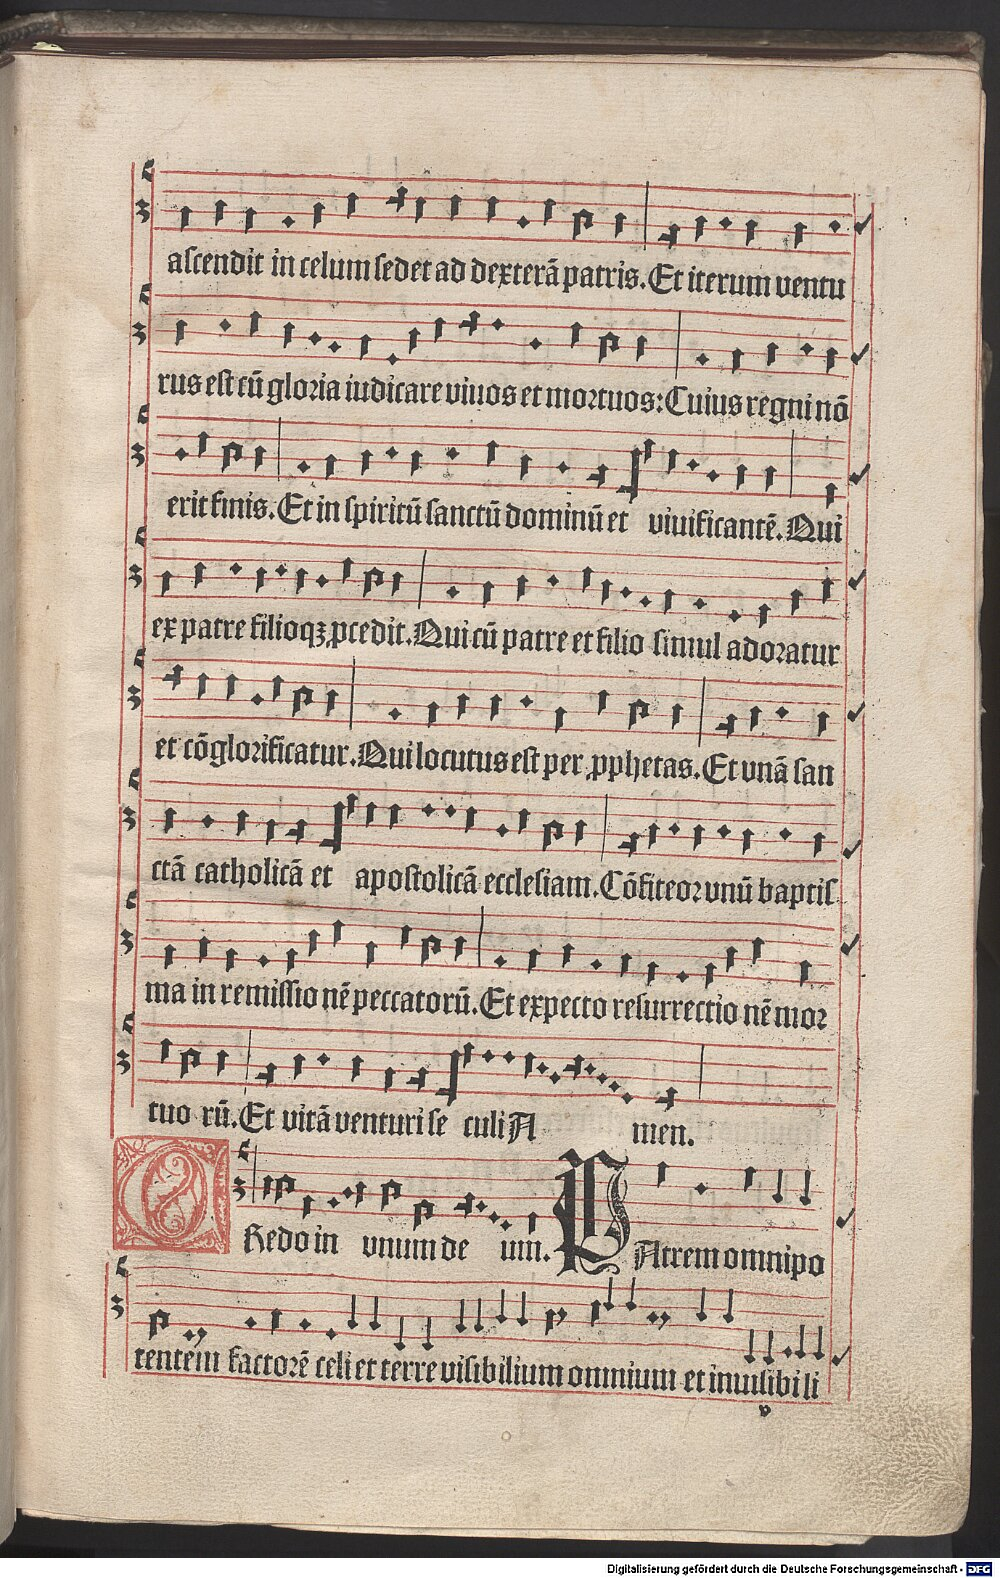 ascendit in celum sedet ad dexterā patris. Et iterum ventu
rus est cū gloria iudicare viuos et mortuos: Cuius regni nō
erit finis. Et in spiritū sanctū dominū et viuificantē. Qui
ex patre filioqꝫ ꝓcedit. Qui cū patre et filio simul adoratur
et cōglorificatur. Qui locutus est per ꝓphetas. Et vnā san
ctā catholicā et apostolicā ecclesiam. Cōfiteor vnū baptis
ma in remissio nē peccatorū. Et expecto resurrectio nē mor
tuo rū. Et vitā venturi se culi A men.
CRedo in vnum de um. PAtrem omnipo
tentem factorē celi et terre visibilium omnium et inuisibili
v
Digitalisierung gefördert durch die Deutsche Forschungsgemeinschaft - DFG